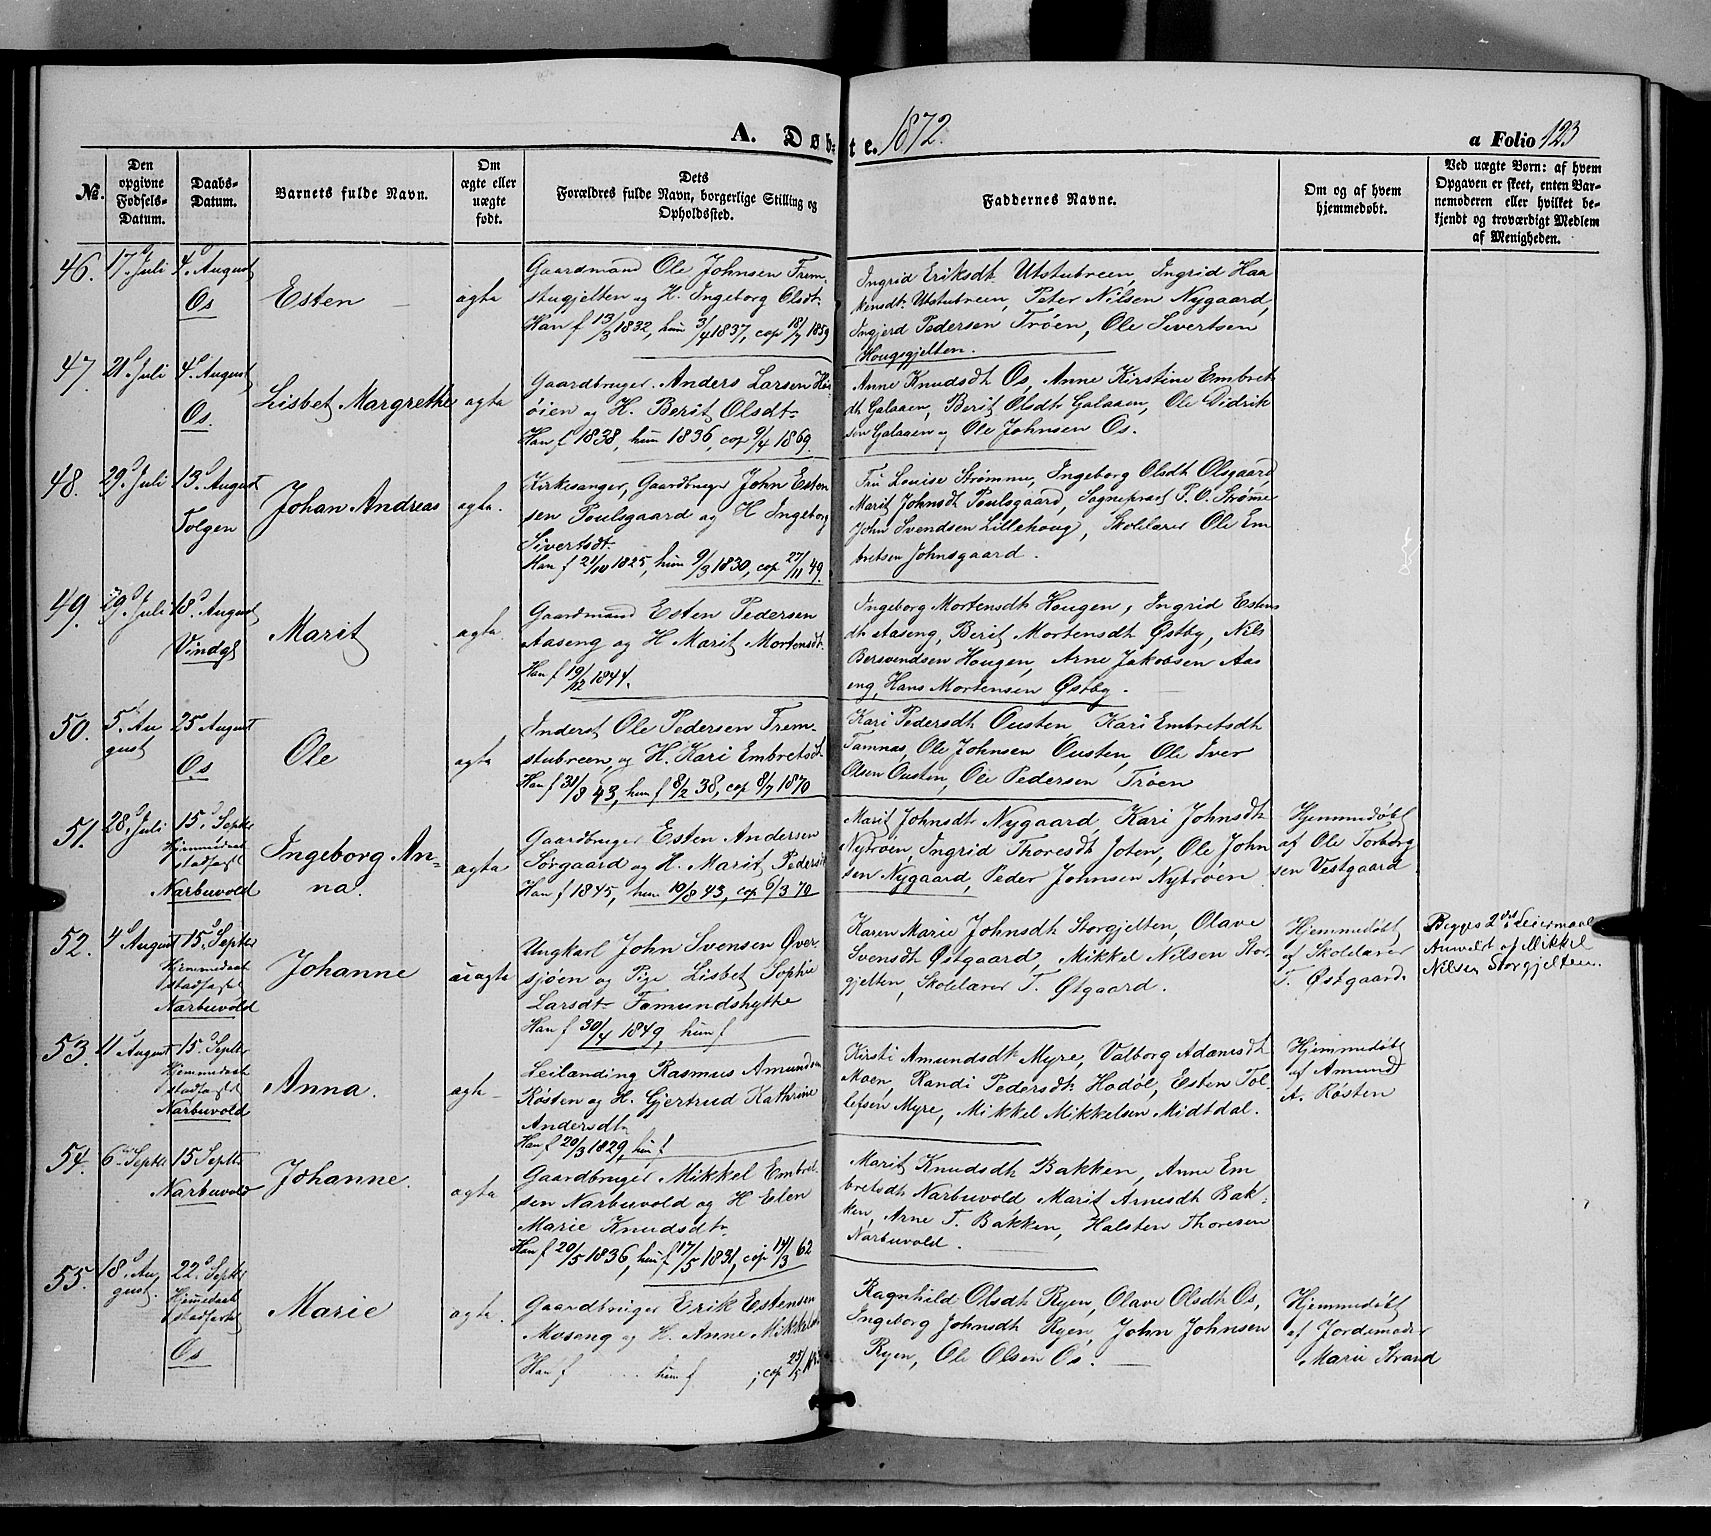 A. Døb-te. 1872.
a Folio 123
No.
Den opgivne Fødsels-Datum.
Daabs-Datum.
Barnets fulde Navn.
Om ægte eller uægte født.
Dets Forældres fulde Navn, borgerlige Stilling og Opholdssted.
Faddernes Navne.
Om og af hvem hjemmedøbt.
Ved uægte Børn: af hvem Opgaven er skeet, enten Barnemoderen eller hvilket bekjendt og troværdigt Medlem af Menigheden.
46. 17. Juli 4. August
Os
Esten
ægte
Gaardmand Ole Johnsen Frem-
stugjelten og H. Ingeborg Olsdt.
Han f 13/3 1832, hun 3/4 1837, cop 18/7 1859
Ingrid Eriksdt Utstubreen, Ingrid Haa
kensdt Utstubreen, Peter Nilsen Nygaard,
Ingjerd Pedersen Trøen, Ole Sivertsen
Hougsgjelten.
47. 21. Juli 4. August
Os.
Lisbet Margrethe
ægte
Gaardbruger Anders Larsen
øien og H. Berit Olsdt
Han f 1838, hun 1836, cop 9/4 1869.
Anne Knudsdt Os, Anne Kirstine Embret
dt Galaaen, Berit Olsdt Galaaen, Ole Didrik
sen Galaaen og Ole Johnsen Os.
48. 29. Juli 13. August
Tolgen
Johan Andreas
ægte.
Kirkesanger, Gaardbruger John Esten
sen Poulsgaard og H Ingeborg
Sivertsdt.
Han f 21/10 1825, hun 9/3 1830, cop 27/11 49.
Fru Louise Strømme, Ingeborg Olsdt Olsgaard,
Marit Johnsdt Poulsgaard, Sognepræst P. O. Strøme
John Svendsen Lillehoug, Skolelærer Ole Em
bretsen Johnsgaard.
49. 29. Juli 18. August
Vindgl
Marit
ægte.
Gaardmand Esten Pedersen
Aaseng og H Marit Mortensdt.
Han f 19/12 1844.
Ingeborg Mortensdt Hougen, Ingrid Estens
dt Aaseng, Berit Mortensdt Østby, Nils
Bersvendsen Hougen, Arne Jakobsen Aas
eng, Hans Mortensen Østby.
50. 5. Au
gust
25 August
Os
Ole
ægte
Inderst Ole Pedersen Frem-
stubreen og H. Kari Embretsdt
Han f 31/8 43, hun f 8/2 38, cop 8/7 1870
Kari Pedersdt Ousten, Kari Embretsdt
Tamnas, Ole Johnsen Ousten, Ole Iver
Olsen Ousten, Ole Pedersen Trøen
51. 28. Juli 15. Septbr
Hjemmedaab
stadfæstet
Narbuvold
Ingeborg An-
na.
ægte
Gaardbruger Esten Andersen
Sørgaard og H. Marit Pedersdt
Han f 1845, hun 10/8 43, cop 6/3 70
Marit Johnsdt Nygaard, Kari Johnsdt
Nytrøen, Ingrid Thoresdt Joten, Ole John
sen Nygaard, Peder Johnsen Nytrøen
Hjemmedøbt
af Ole Torborg
sen Vestgaard
52. 4. August 15. Septbr
Hjemmedaab
stadfæstet
Narbuvold
Johanne
uægte
Ungkarl John Svensen Øver-
sjøen og Pige Lisbet Sophie
Larsdt Fæmundshytte
Han f 30/4 1849, hun f
Karen Marie Johnsdt Storgjelten, Olave
Svensdt Østgaard, Mikkel Nilsen Stor-
gjelten, Skolelærer T. Østgaard.
Hjemmedøbt
af Skolelærer
T. Østgaard.
Begges 2det Leiermaal
Anmeldt af Mikkel
Nilsen Storgjelten.
53. 11 August 15. Septbr
Hjemmedaab
stadfæstet
Narbuvold
Anna.
ægte
Leilænding Rasmus Amundsen
Røsten og H. Gjertrud Kathrine
Andersdt
Han f 20/3 1829, hun f
Kirsti Amundsdt Myre, Valborg Adamsdt
Moen, Randi Pedersdt Hodøl, Esten Tol
lefsen Myre, Mikkel Mikkelsen Midtdal.
Hjemmedøbt
af Amund
A. Røsten
54. 6. Septbr 15 Septbr
Narbuvold
Johanne.
ægte
Gaardbruger Mikkel Embret
sen Narbuvold og H Elen
Marie Knudsdt
Han f 20/5 1836, hun f 17/5 1831, cop 14/3 62
Marit Knudsdt Bakken, Anne Em
bretsdt Narbuvold Marit Arnesdt Bak-
ken, Arne T. Bakken, Halsten Thoresen
Narbuvold.
55. 18. Au
gust.
22. Septbr
Hjemmedaab
stadfæstet
Os
Marie
ægte.
Gaardbruger Erik Estensen
Moseng og H. Anne Mikkelsdt
Han f hun f ; cop 25/5
Ragnhild Olsdt Ryen, Olave Olsdt Os,
Ingeborg Johnsdt Ryen, John Johnsen
Ryen, Ole Olsen Os.
Hjemmedøbt
af Jordemoder
Marie Strand